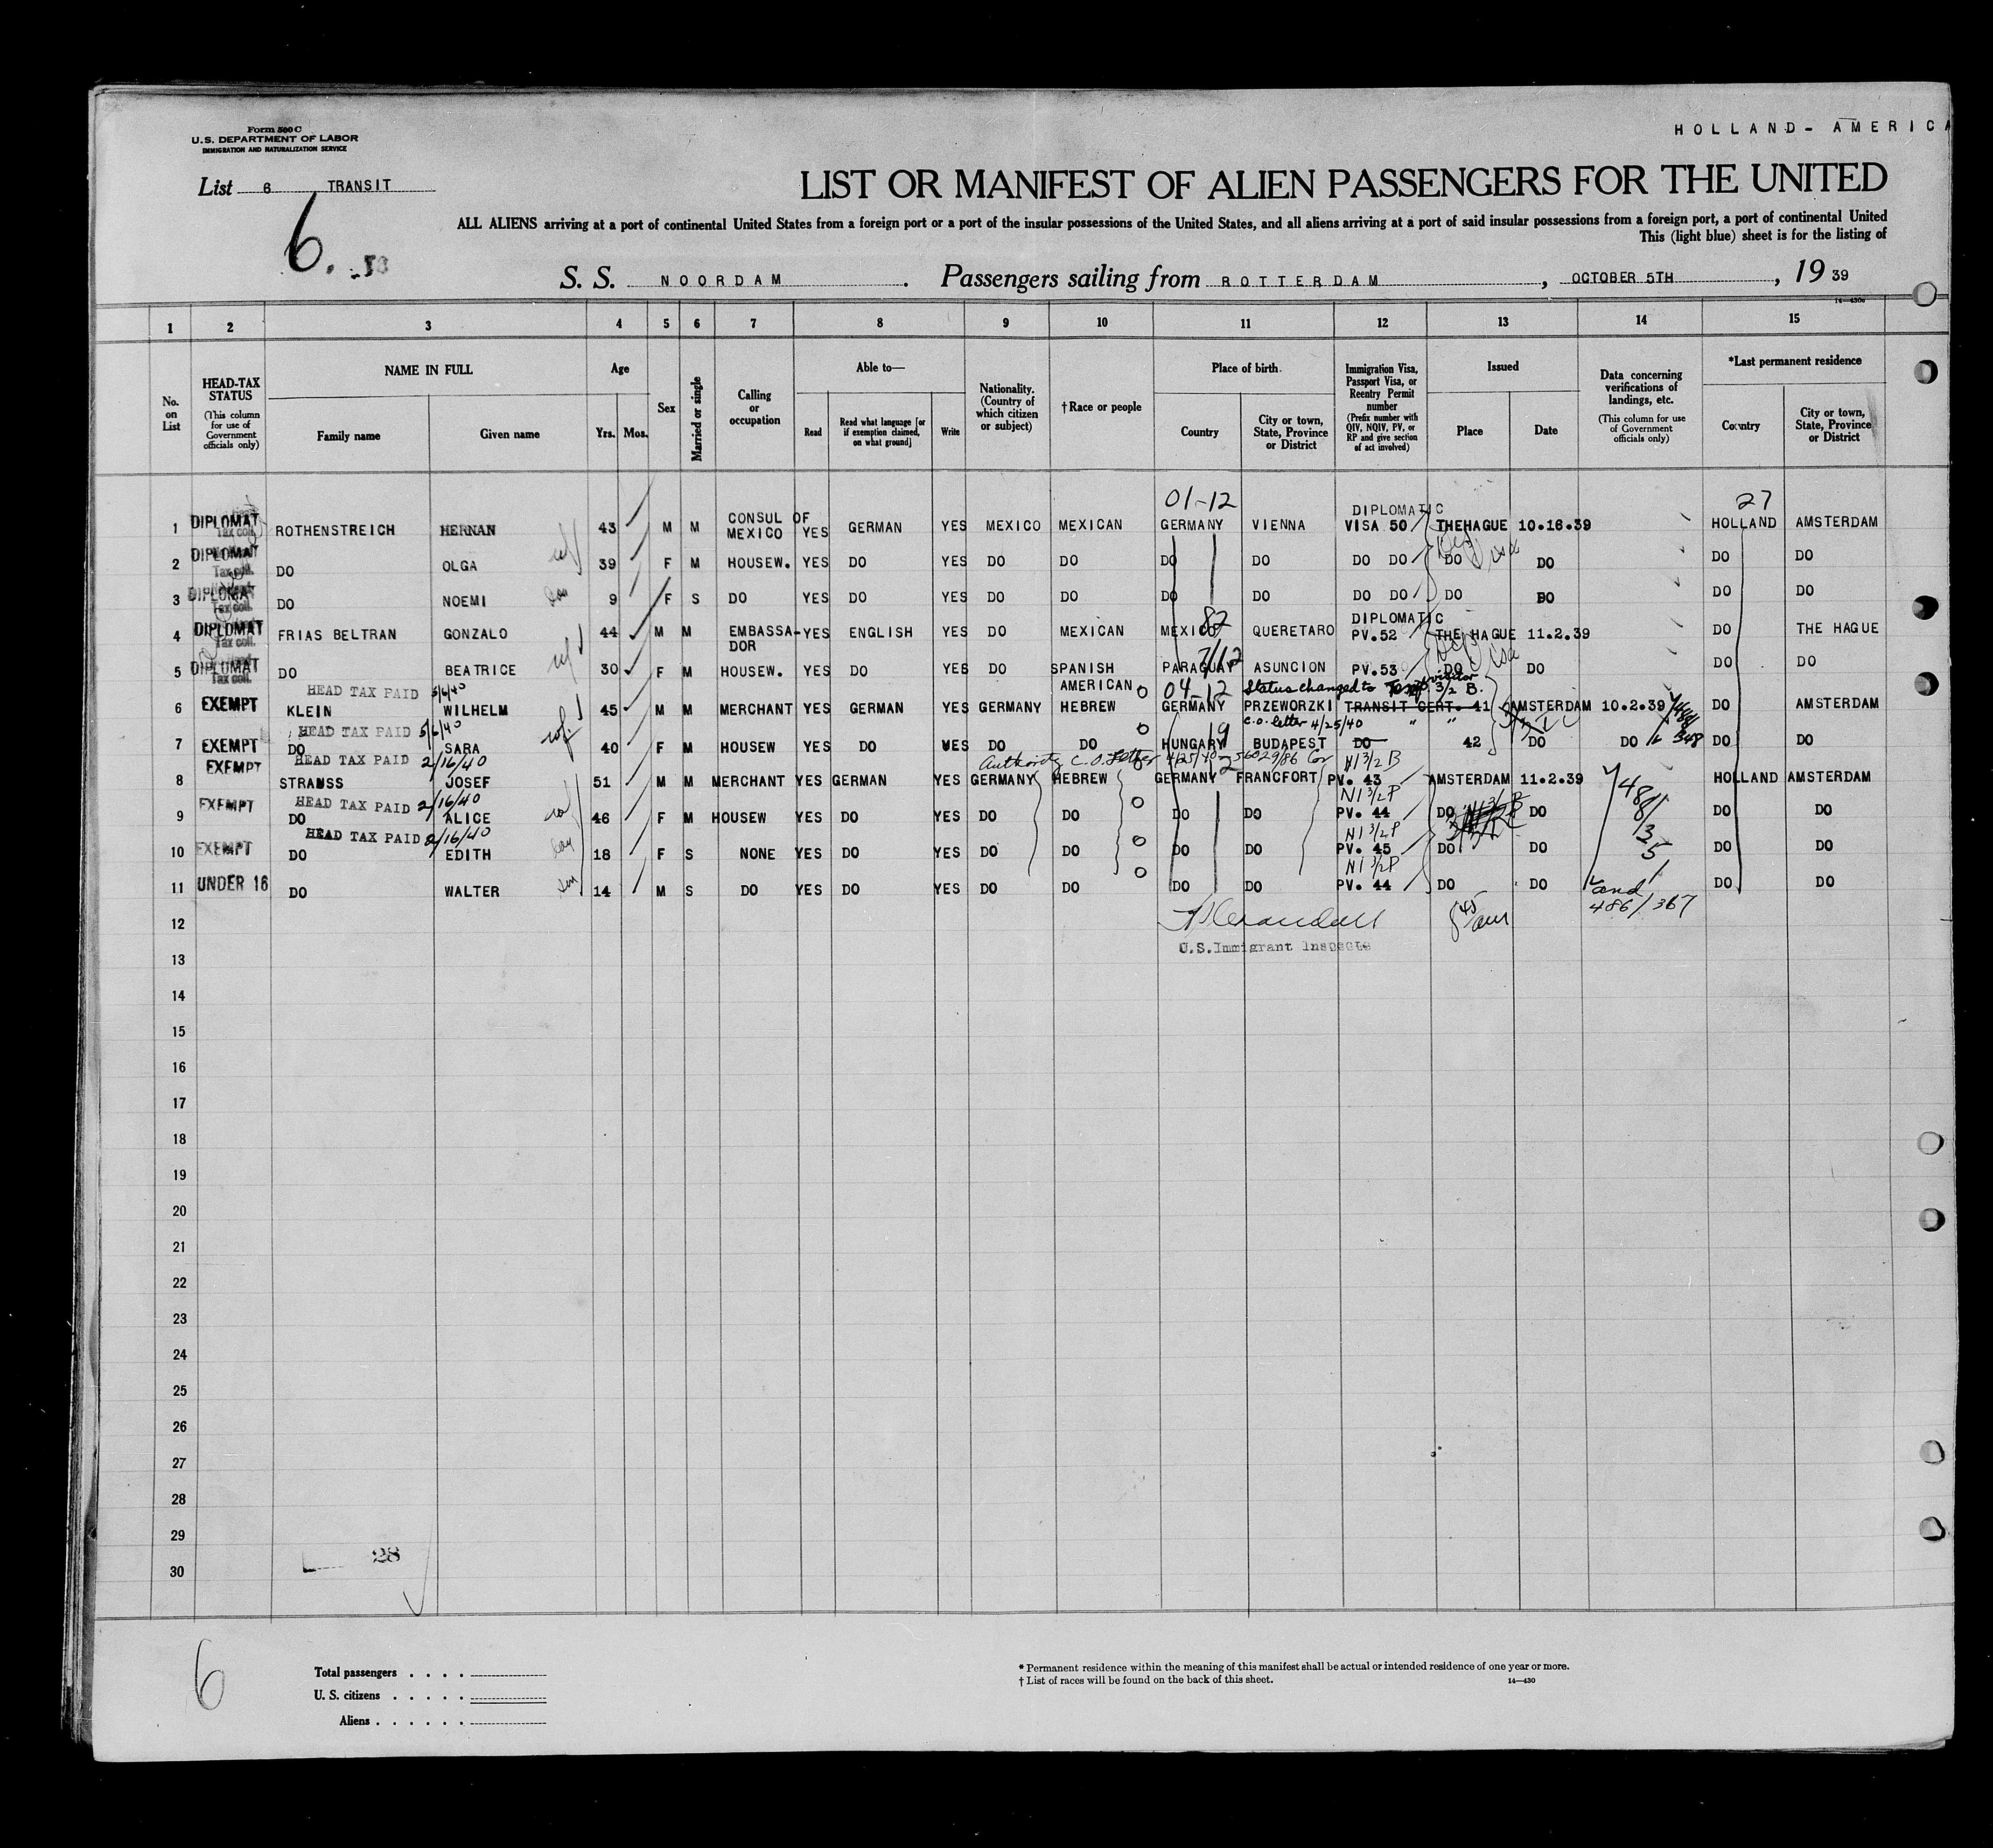 Form 500 C
U.S. DEPARTMENT OF LABOR
IMMIGRATION AND NATURALIZATION SERVICE
HOLLAND- AMERICA
List 6 TRANSIT
LIST OR MANIFEST OF ALIEN PASSENGERS FOR THE UNITED
6.
ALL ALIENS arriving at a port of continental United States from a foreign port or a port of the insular possessions of the United States, and all aliens arriving at a port of said insular possessions from a foreign port, a port of continental United
This (light blue) sheet is for the listing of
S. S. NOORDAM . Passengers sailing from ROTTERDAM , OCTOBER 5TH , 19 39
14—430c
1 2 3 4 5 6 7 8 9 10 11 12 13 14 15
No. on List
HEAD-TAX STATUS (This column for use of Government officials only)
NAME IN FULL
Family name
Given name
Age
Yrs.
Mos.
Sex
Married or single
Calling or occupation
Able to—
Read
Read what language [or if exemption claimed, on what ground]
Write
Nationality. (Country of which citizen or subject)
†Race or people
Place of birth.
Country
City or town, State, Province or District
Immigration Visa, Passport Visa, or Reentry Permit number (Prefix number with QIV, NQIV, PV, or RP and give section of act involved)
Issued
Place
Date
Data concerning verifications of landings, etc. (This column for use of Government officials only)
*Last permanent residence
Country
City or town, State, Province or District
01-12 DIPLOMATIC 27
1 DIPLOMAT ROTHENSTREICH HERNAN 43 M M CONSUL OF MEXICO YES GERMAN YES MEXICO MEXICAN GERMANY VIENNA VISA 50 THEHAGUE 10.16.39 HOLLAND AMSTERDAM
Tax coll.
2 DIPLOMAT DO OLGA 39 F M HOUSEW. YES DO YES DO DO DO DO DO DO DO DO DO DO
Tax coll.
3 DIPLOMAT DO NOEMI 9 F S DO YES DO YES DO DO DO DO DO DO DO DO DO DO
Tax coll.
82 DIPLOMATIC
4 DIPLOMAT FRIAS BELTRAN GONZALO 44 M M EMBASSA-DOR YES ENGLISH YES DO MEXICAN MEXICO QUERETARO PV.52 THE HAGUE 11.2.39 DO THE HAGUE
Tax coll.
5 DIPLOMAT DO BEATRICE 30 F M HOUSEW. YES DO YES DO SPANISH AMERICAN PARAGUAY ASUNCION PV.53 DO DO DO DO
Tax coll.
HEAD TAX PAID 5/6/40 04-12 Status changed to Temp visitor 3/2 B.
6 EXEMPT KLEIN WILHELM 45 M M MERCHANT YES GERMAN YES GERMANY HEBREW GERMANY PRZEWORZKI TRANSIT CERT. 41 AMSTERDAM 10.2.39 DO AMSTERDAM
HEAD TAX PAID 5/6/40 19 C.O. letter 4/25/40 " "
7 EXEMPT DO SARA 40 F M HOUSEW YES DO YES DO DO HUNGARY BUDAPEST DO 42 DO DO 348 DO DO
HEAD TAX PAID 2/16/40 Authority C.O. Letter 4/25/40 - 56029/86
8 EXEMPT STRAUSS JOSEF 51 M M MERCHANT YES GERMAN YES GERMANY HEBREW GERMANY FRANCFORT PV. 43 AMSTERDAM 11.2.39 HOLLAND AMSTERDAM
HEAD TAX PAID 2/16/40
9 EXEMPT DO ALICE 46 F M HOUSEW YES DO YES DO DO DO DO PV. 44 DO DO DO DO
HEAD TAX PAID 2/16/40
10 EXEMPT DO EDITH 18 F S NONE YES DO YES DO DO DO DO PV. 45 DO DO DO DO
11 UNDER 16 DO WALTER 14 M S DO YES DO YES DO DO DO DO PV. 44 DO DO DO DO
and
486/367
12
U.S.Immigrant Inspecto
13
14
15
16
17
18
19
20
21
22
23
24
25
26
27
28
29
28
30
6
Total passengers . . . .
U. S. citizens . . . . .
Aliens . . . . . .
* Permanent residence within the meaning of this manifest shall be actual or intended residence of one year or more.
† List of races will be found on the back of this sheet.
14—430